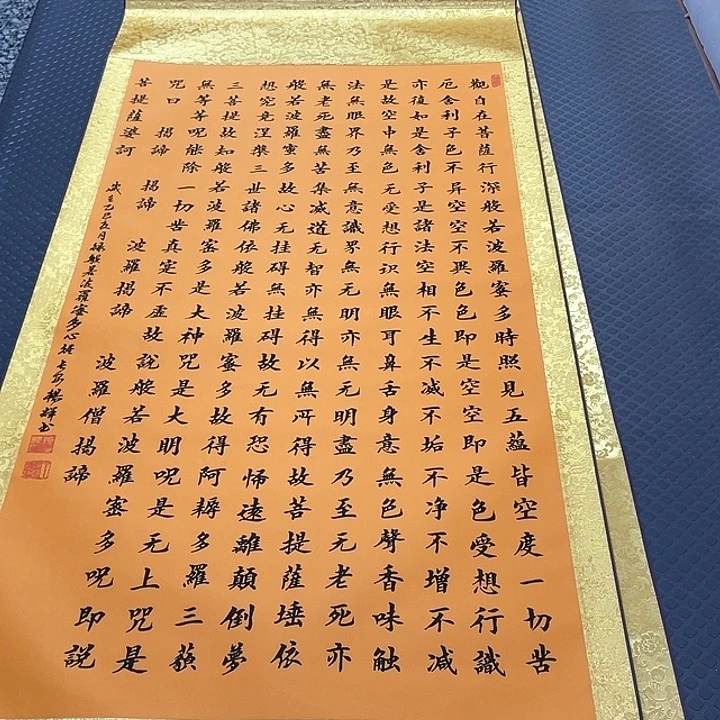 觀自在菩薩行深般若波羅蜜多時照見五蘊皆空度一切苦
厄舍利子色不异空空不異色色即是空空即是色受想行識
亦復如是舍利子是諸法空相不生不滅不垢不净不增不减
是故空中無色无受想行识無眼耳鼻舌身意無色聲香味触
法無眼界乃至無意識界無无明亦無无明盡乃至无老死亦
無老死盡無苦集滅道无智亦無得以無所得故菩提薩埵依
般若波羅蜜多故心无挂碍無挂碍故无有恐怖遠離顛倒夢
想究竟涅槃三世諸佛依般若波羅蜜多故得阿耨多羅三藐
三菩提故知般若波羅蜜多是大神咒是大明呪是无上咒是
無等等呪能除一切苦真实不虚故説般若波羅蜜多呪即説
咒曰 揭諦 揭諦 波羅揭諦 波羅僧揭諦
菩提薩婆訶
歲在乙巳夏月録般若波羅蜜多心經 楊輝书